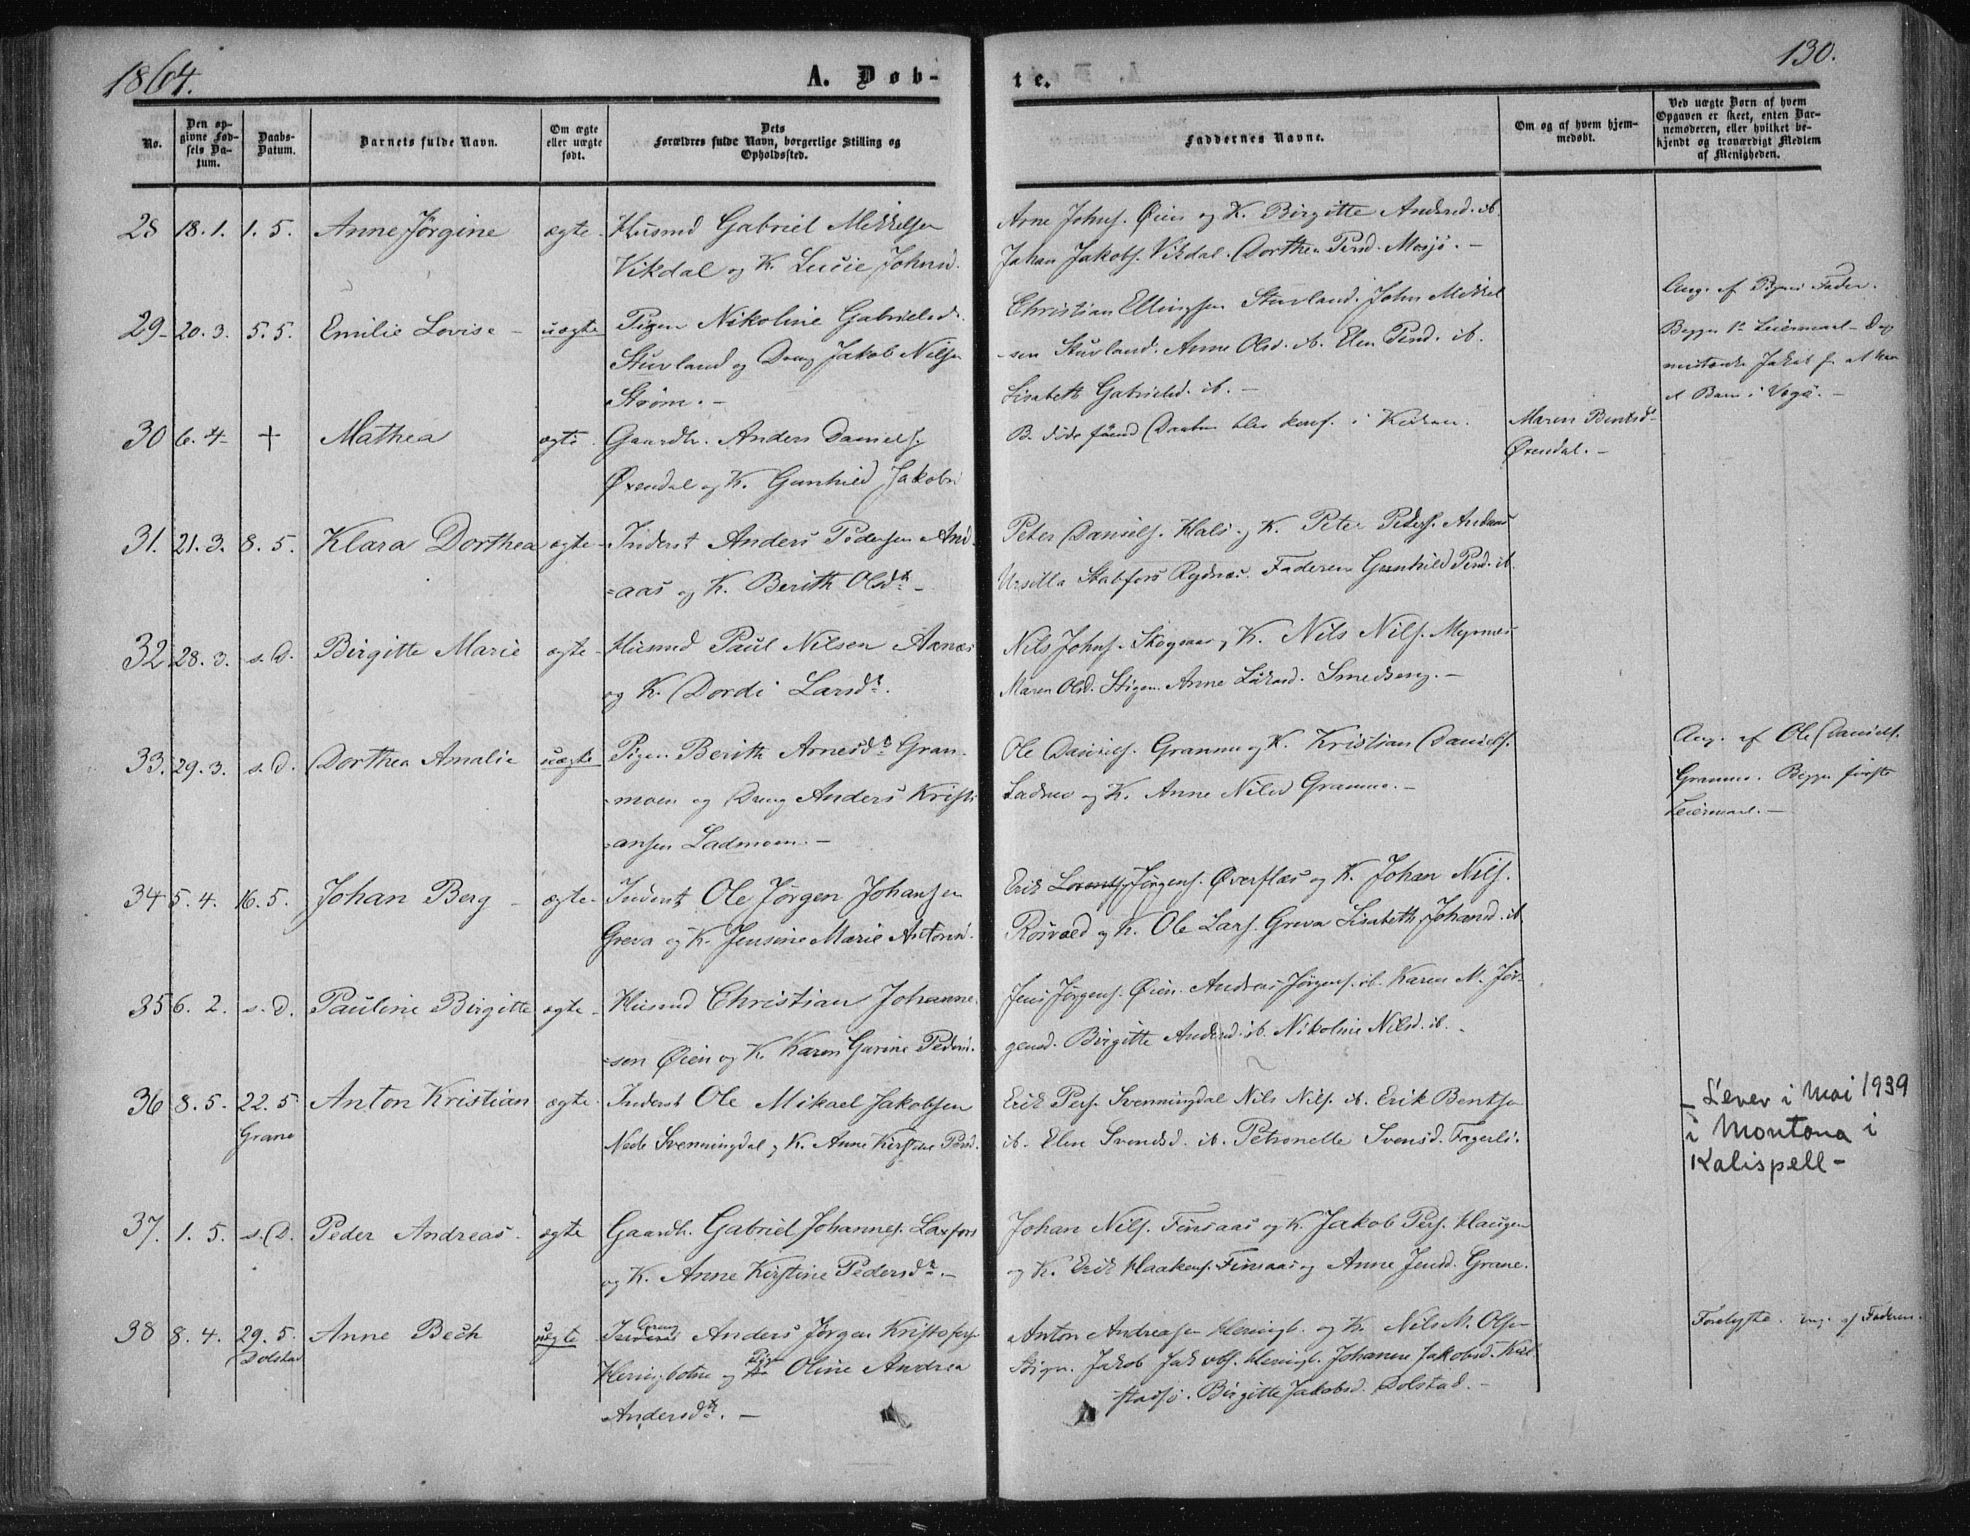 1864.
A. Døb-
te.
130.
No.
Den opgivne Fødsels Datum.
Daabs-Datum.
Barnets fulde Navn.
Om ægte eller uægte født.
Dets Forældres fulde Navn, borgerlige Stilling og Opholdssted.
Faddernes Navne.
Om og af hvem hjemmedøbt.
Ved uægte Børn af hvem Opgaven er skeet, enten Barnemoderen, eller hvilket bekjendt og troværdigt Medlem af Menigheden.
28 18.1. 1.5. Anne Jørgine ægte Husmd Gabriel Mikkelsen Arne Johns. Øien og K. Birgitte Andersd. ib.
Vikdal og K. Lucie Johnsd. Johan Jakobs. Vikdal. Dorthea Persd. Mosjø. -
29 20.3. 5.5. Emilie Lovise - uægte Pigen Nikoline Gabrielsd. Christian Ellingsen Sturland. John Mikkel
Sturland og Dreng Jakob Nilsen -sen Sturland. Anne Olsd. ib. Elen Persd. ib.
Strøm. - Lisabeth Gabrielsd. ib. -
Begge 1ste Leiermaal -
30 6.4. + Mathea ægte Gaardbr. Anders Daniels. B. døde førend Daaben blev konf. i Kirken. Maren Bentsd.
Øxendal og K. Gunhild Jakobsd. Øxendal. -
31. 21.3. 8.5. Klara Dorthea ægte Inderst Anders Pedersen And- Peter Daniels. Hals og K. Peter Peders. Andaas
=aas og K. Berith Olsdtr. - Ursilla Stabfors Rydnæs. Faderen Gunhild Persd. ib.
32 28.3. s.D. Birgitte Marie ægte Husmd Paul Nilsen Aanæs Nils Johns. Skogaas og K. Nils Nils. Myrnes
og K. Dordi Larsdtr. Maren Olsd. Stigen. Anne Smedseng. -
33. 29.3. s.d. Dorthea Amalie uægte Pigen Berith Arnesdtr Gran- Ole Daniels. Granmo og K. Kristian Daniels. Ang. af Ole Daniels.
-moen og Dreng Anders Kristi- Ladmo og K. Anne Nilsd Granmo. - Granmo. Begge første
=ansen Ladmoen. - Leiermaal. -
34 5.4. 16.5. Johan Berg - ægte Inderst Ole Jørgen Johansen Erik Jørgens. Øverflæs og K. Johan Nils.
Greva og K. Jensine Marie Antonsd. Røsvold og K. Ole Lars. Greva Lisabeth Johansd. ib.
35 6.2. s.d. Pauline Birgitte ægte Husmd Christian Johanne- Jens Jørgens. Øien. Andreas Jørgens. ib. Karen M. Jør-
=sen Øien og K. Karen Gurine Pedersd. gensd. Birgitte Andersd. ib. Nikoline Nilsd. ib. -
36 8.5. 22.5 Anton Kristian ægte Inderst Ole Mikael Jakobsen Erik Pers. Svenningdal Nils Nils. ib. Erik Bentsen
Grane Nedr Svenningdal og K. Anne Kirstine Persd. ib. Elen Svendsd. ib. Petronelle Svensd. Fagerli.
- Lever i Mai 1939
i Montana i
Kalispell -
37. 1.5. s.D. Peder Andreas ægte Gaardbr. Gabriel Johannes. Laxfors Johan Nils. Finsaas og K. Jakob Pers. Haugen
og K. Anne Kirstine Pedersdtr. - og K. Erik Haakens. Finsaas og Anne Jensd. Grane.
38 8.4. 29.5. Anne Bech uægte Dreng Anders Jørgen Kristofers. Anton Andreasen Heringb. og K. Nils M. Olsen Forlovede. ang. af Faderen.
Dolstad Heringbotne og Pige Oline Andrea Stigen. Jakob Jakobs. Heringb. Johanne Jakobsd. Kul-
Andersdtr. - stadsjø. Birgitte Jakobsd. Dolstad. -